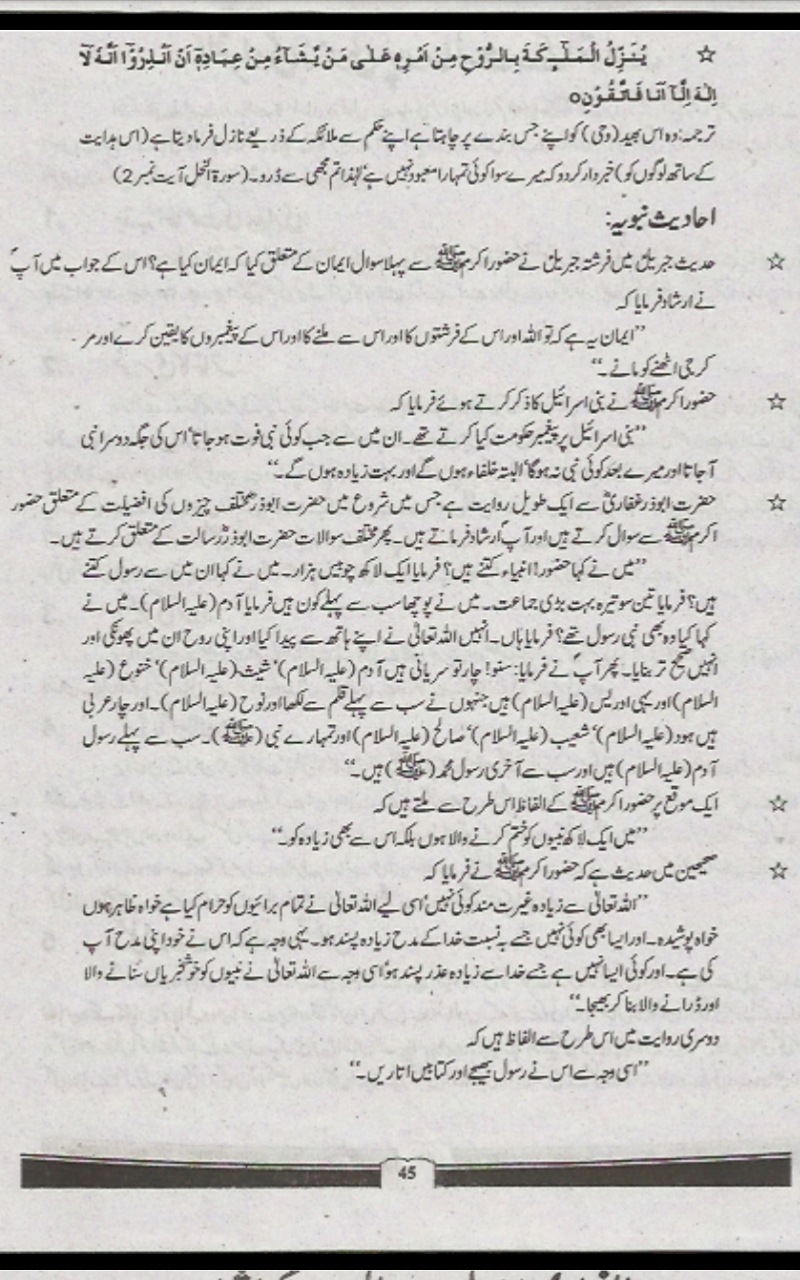 ☆ يُنَزِّلُ الْمَلٰٓئِكَةَ بِالرُّوْحِ مِنْ اَمْرِهٖ عَلٰى مَنْ يَّشَآءُ مِنْ عِبَادِهٖٓ اَنْ اَنْذِرُوْٓا اَنَّهٗ لَآ
اِلٰهَ اِلَّآ اَنَا فَاتَّقُوْنِ٥
ترجمہ: وہ اس بھید (وحی) کو اپنے جس بندے پر چاہتا ہے اپنے حکم سے ملائکہ کے ذریعے نازل فرما دیتا ہے (اس ہدایت
کے ساتھ لوگوں کو) خبردار کردو کہ میرے سوا کوئی تمہارا معبود نہیں ہے لہٰذا تم مجھی سے ڈرو۔ (سورۃ النحل آیت نمبر 2)
احادیث نبویہ:
☆ حدیث جبریلؑ میں فرشتہ جبریلؑ نے حضور اکرم ﷺ سے پہلا سوال ایمان کے متعلق کیا کہ ایمان کیا ہے؟ اس کے جواب میں آپؐ
نے ارشاد فرمایا کہ
’’ایمان یہ ہے کہ تو اللہ اور اس کے فرشتوں کا اور اس سے ملنے کا اور اس کے پیغمبروں کا یقین کرے اور مر
کر جی اٹھنے کو مانے۔‘‘
☆ حضور اکرم ﷺ نے بنی اسرائیل کا ذکر کرتے ہوئے فرمایا کہ
’’بنی اسرائیل پر پیغمبر حکومت کیا کرتے تھے۔ ان میں سے جب کوئی نبی فوت ہو جاتا‘ اس کی جگہ دوسرا نبی
آ جاتا اور میرے بعد کوئی نبی نہ ہوگا‘ البتہ خلفاء ہوں گے اور بہت زیادہ ہوں گے۔‘‘
☆ حضرت ابوذر غفاریؓ سے ایک طویل روایت ہے جس میں شروع میں حضرت ابوذرؓ مختلف چیزوں کی افضلیت کے متعلق حضور
اکرم ﷺ سے سوال کرتے ہیں اور آپؐ ارشاد فرماتے ہیں۔ پھر مختلف سوالات حضرت ابوذرؓ رسالت کے متعلق کرتے ہیں۔
’’میں نے کہا حضور! انبیاء کتنے ہیں؟ فرمایا ایک لاکھ چوبیس ہزار۔ میں نے کہا ان میں سے رسول کتنے
ہیں؟ فرمایا تین سو تیرہ بہت بڑی جماعت۔ میں نے پوچھا سب سے پہلے کون ہیں فرمایا آدم (علیہ السلام)۔ میں نے
کہا کیا وہ بھی نبی رسول تھے؟ فرمایا ہاں۔ انہیں اللہ تعالیٰ نے اپنے ہاتھ سے پیدا کیا اور اپنی روح ان میں پھونکی اور
انہیں صحیح تر بنایا۔ پھر آپؐ نے فرمایا: سنو! چار تو سریانی ہیں آدم (علیہ السلام)‘ شیث (علیہ السلام)‘ خنوع (علیہ
السلام) اور یہی ادریس (علیہ السلام) ہیں جنہوں نے سب سے پہلے قلم سے لکھا اور نوح (علیہ السلام)۔ اور چار عربی
ہیں ہود (علیہ السلام)‘ شعیب (علیہ السلام)‘ صالح (علیہ السلام) اور تمہارے نبی (ﷺ)۔ سب سے پہلے رسول
آدم (علیہ السلام) ہیں اور سب سے آخری رسول محمد (ﷺ) ہیں۔‘‘
☆ ایک موقع پر حضور اکرم ﷺ کے الفاظ اس طرح سے ملتے ہیں کہ
’’میں ایک لاکھ نبیوں کو ختم کرنے والا ہوں بلکہ اس سے بھی زیادہ کو۔‘‘
☆ صحیحین میں حدیث ہے کہ حضور اکرم ﷺ نے فرمایا کہ
’’اللہ تعالیٰ سے زیادہ غیرت مند کوئی نہیں‘ اسی لیے اللہ تعالیٰ نے تمام برائیوں کو حرام کیا ہے خواہ ظاہر ہوں
خواہ پوشیدہ۔ اور ایسا بھی کوئی نہیں جسے بہ نسبت خدا کے مدح زیادہ پسند ہو۔ یہی وجہ ہے کہ اس نے خود اپنی مدح آپ
کی ہے۔ اور کوئی ایسا نہیں ہے جسے خدا سے زیادہ عذر پسند ہو‘ اسی وجہ سے اللہ تعالیٰ نے نبیوں کو خوشخبریاں سنانے والا
اور ڈرانے والا بنا کر بھیجا۔‘‘
دوسری روایت میں اس طرح سے الفاظ ہیں کہ
’’اسی وجہ سے اس نے رسول بھیجے اور کتابیں اتاریں۔‘‘
45